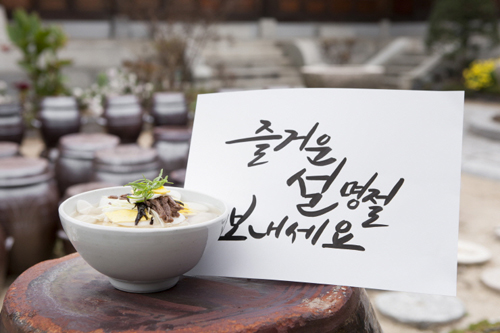 즐거운
설명절
보내세요